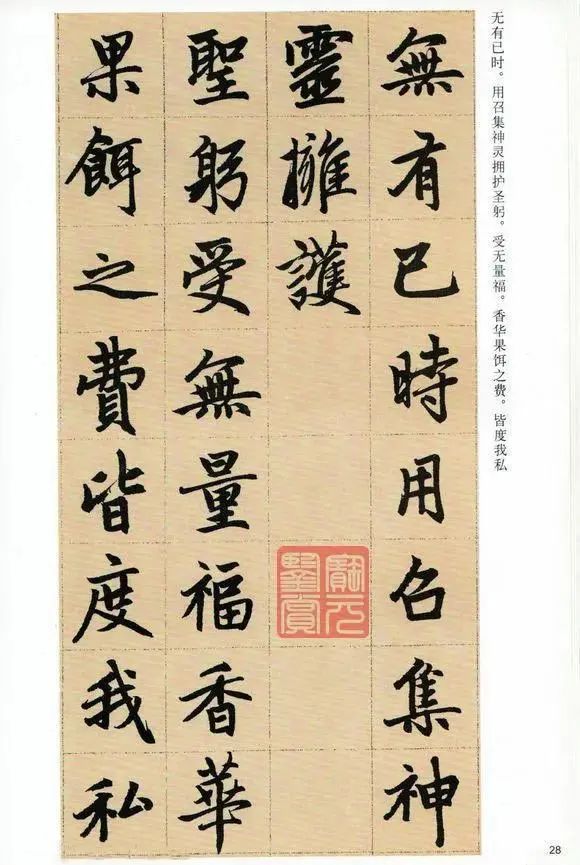 无有已时。用召集神灵拥护圣躬。受无量福。香华果饵之费。皆度我私
無有已時用召集神
靈擁護
聖躬受無量福香華
果餌之費皆度我私
寶元
鑒賞
28